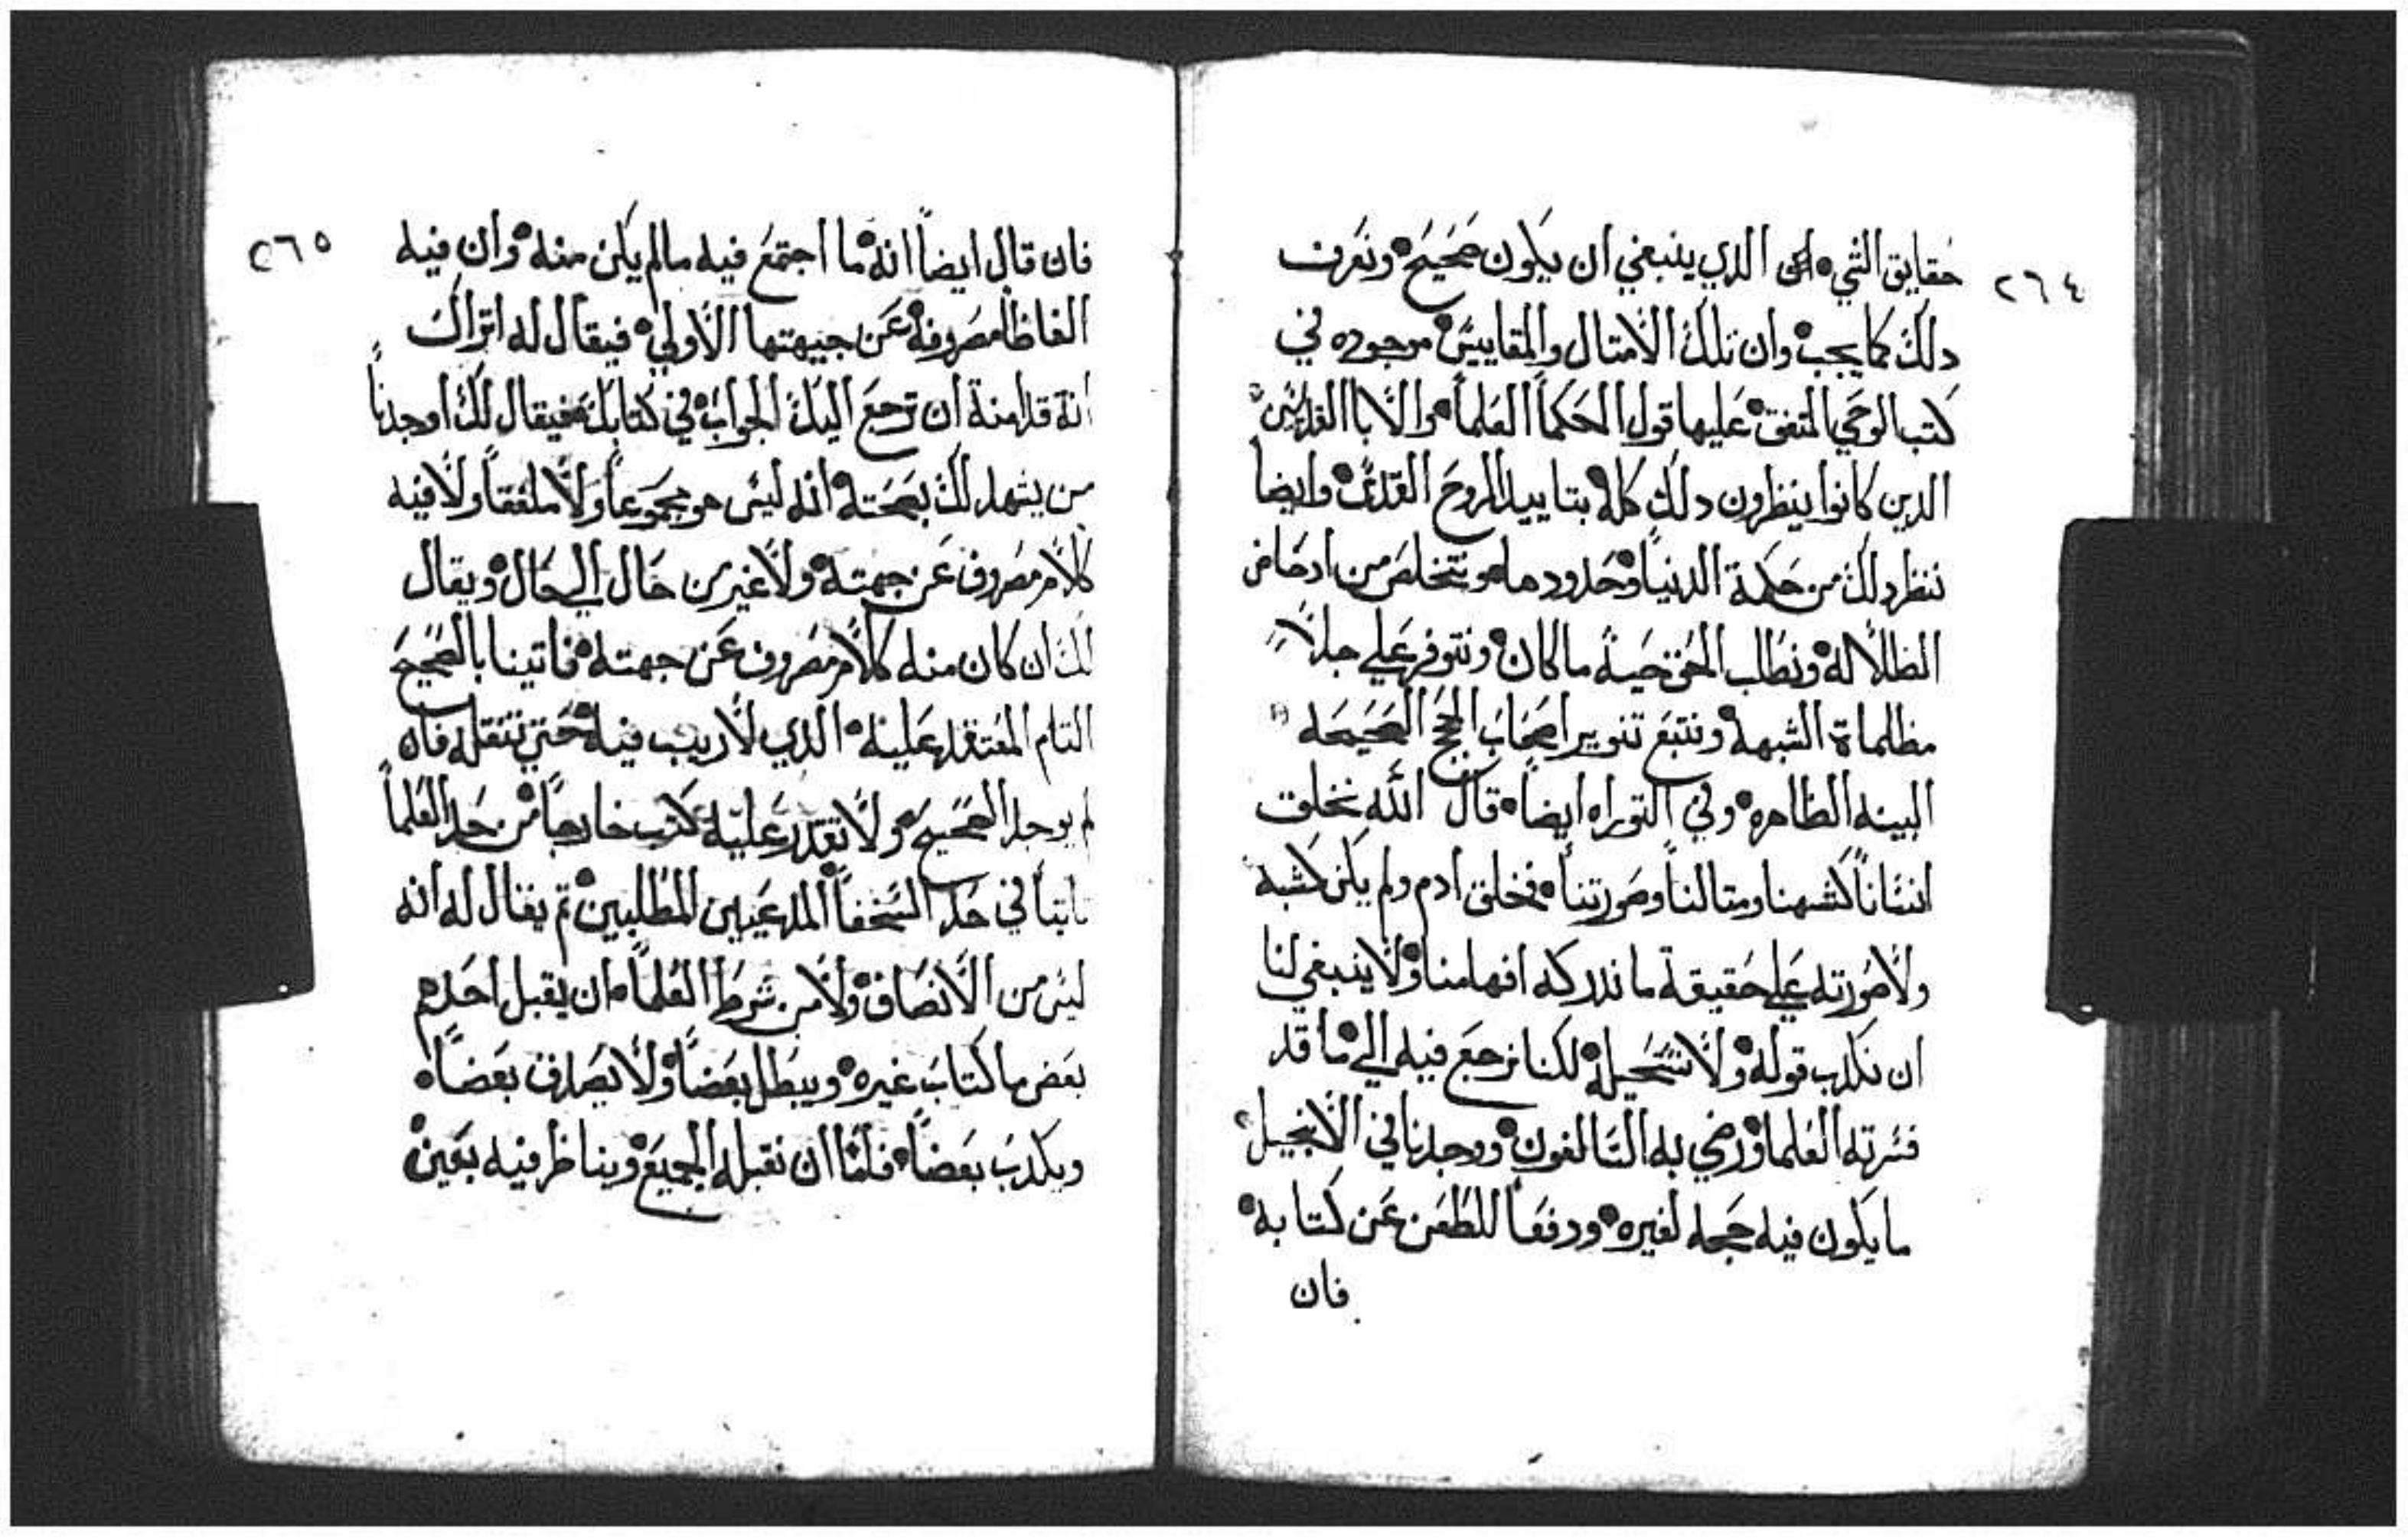 ٢٦٤
حقايق الشي الى الذي ينبغي ان يكون صَحَيَح ونعَرف
دلك كما يجب وان تلك الامتال والمقاييس موجوده في
كتب الوحَي المتفق عَليها قول الحَكما العَلما والابا القديسَين
الدين كانوا ينظرون دلك كله بتاييد الروحَ القدس وايضاً
ننظر دلك من حَكمة الدنيا وحَدود ما هو نتخلص من ادحَاض
الظلاله ونطلب الحَق حَيث ما كان ونتوفر عَلي جلاً
مظلماة الشبهه ونتبع تنوير اصحَاب الحجج الصَحَيحَه
البينه الظاهره وفي التوراه ايضاً قال الله نخلق
انسَاناً كشبهنا ومتالنا وصَورتنا فخلق ادم ولم يكن كشبهه
ولا صَورته عَلي حَقيقة ما تدركه افهامنا ولا ينبغي لنا
ان نكدب قوله ولا نستحَيله لكنا نرجع فيه الي ما قد
فسَرته العَلما ورضي به السَالفون ووجدنا في الانجيل
ما يكون فيه حجه لغيره ودفعَا للطعَن عَن كتابه
فان
٢٦٥
فان قال ايضاً انه ما اجتمَع فيه مالم يكن منه وان فيه
الفاظاً مصَروفه عَن جيهتها الاولي فيقال له اتراك
انة قد امنة ان ترجع اليك الجواب في كتابك فيقال لك اوجدناً
من يشهد لك بصَحَته انه ليسَ هو مجموعاً ولا ملفقاً ولا فيه
كلام مصَروف عَن جهته ولا غير من حَال الي حَال ويقال
لك ان كان منه كلام مصَروف عَن جهته فاتينا بالصَحَيحَ
التام المعَتقد عَليه الذي لا ريب فيه حَتي ننقله فان
لم يوجد الصَحَيح ولا تقدر عَليه كنت خارجاً من حَد العَلماً
تابتاً في حَد السَخفاً المدعَيين المطلبين تم يقال له انه
ليسَ من الانصَاف ولا من شروط العَلماً ان يقبل احَدهم
بعَض ما كتاب غيره ويبطل بعَضاً ولا يصَدف بعَضاً
ويكدب بعَضاً فلمّا ان نقبله الجميع ويناظر فيه بعَين